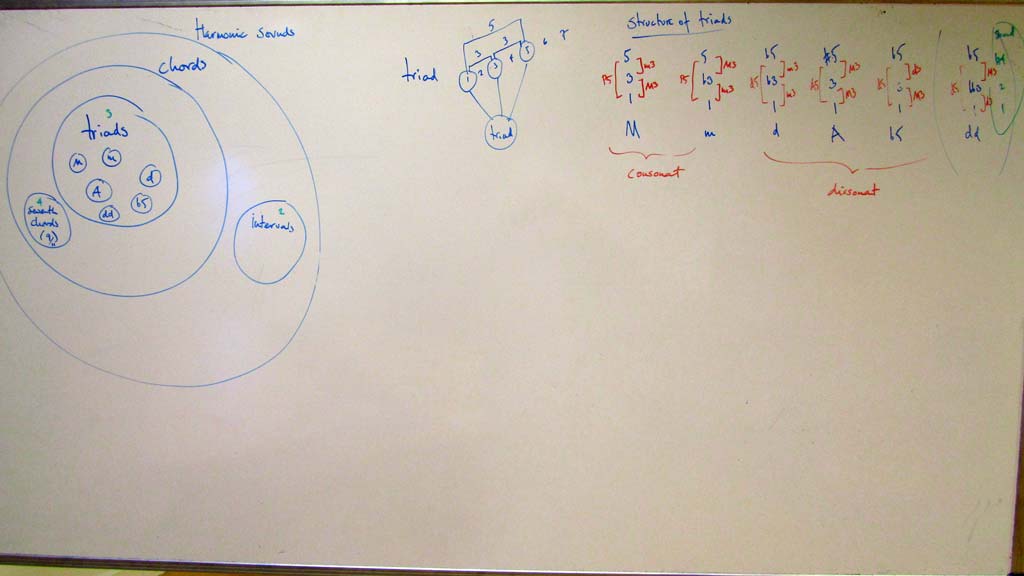 Harmonic sounds
chords
3
triads
M
m
A
d
dd
b5
4
seventh
chords
2
intervals
triad
5
3
3
1
2
3
4
5
6
7
triad
Structure of triads
5
3
1
P5
m3
M3
M
5
b3
1
P5
M3
m3
m
b5
b3
1
b5
m3
m3
d
#5
3
1
#5
M3
M3
A
b5
3
1
b5
d3
M3
b5
b5
1
b5
M3
d3
dd
2
1
consonat
dissonat